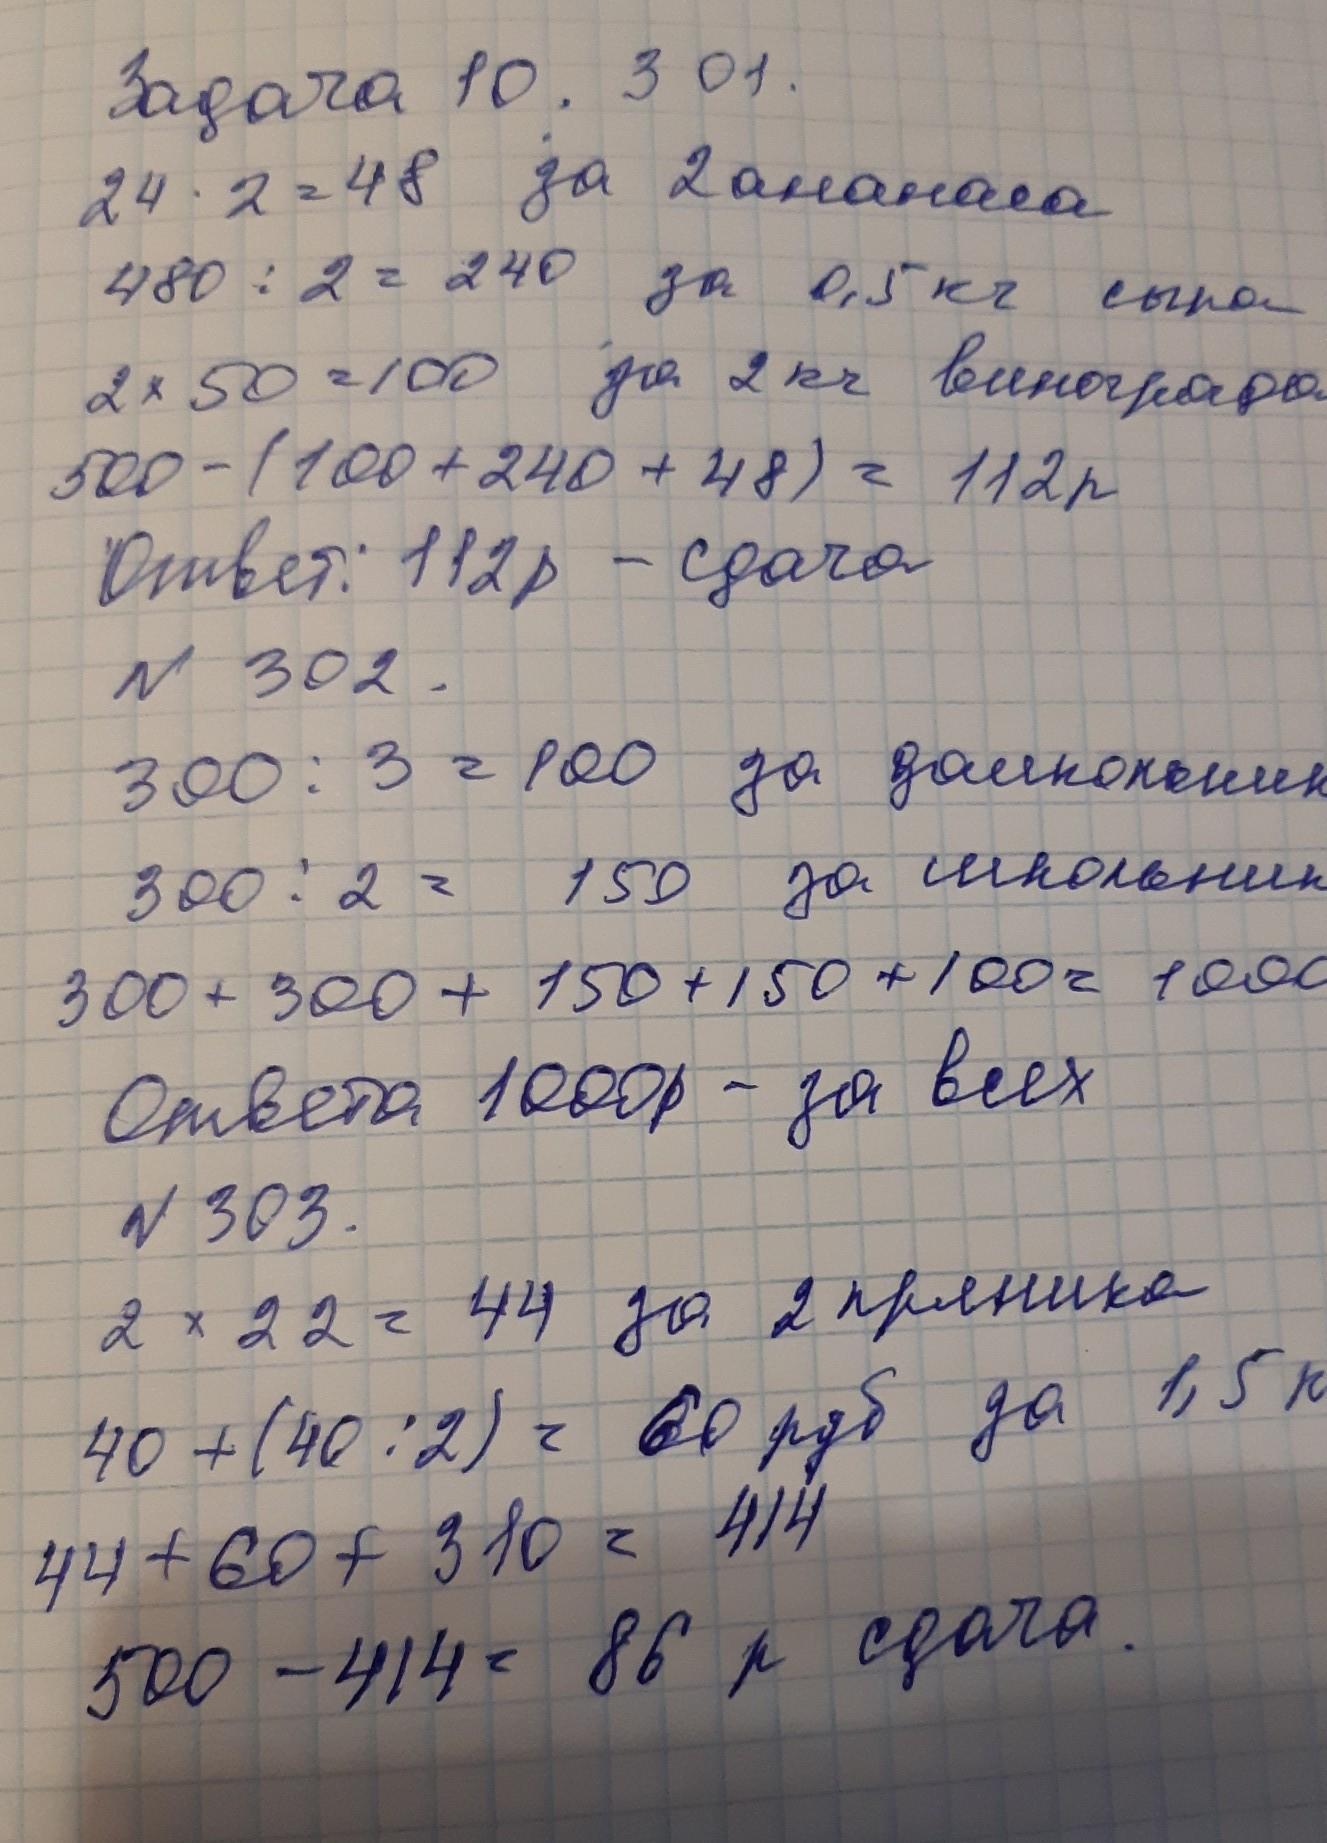 Задача 10. 301.
24 · 2 = 48 за 2 ананаса
480 : 2 = 240 за 0,5 кг сыра
2 × 50 = 100 за 2 кг винограда
500 - (100 + 240 + 48) = 112 р
Ответ: 112 р - сдача
N 302.
300 : 3 = 100 за дашкольник
300 : 2 = 150 за школьник
300 + 300 + 150 + 150 + 100 = 1000
Ответа 1000р - за всех
N 303.
2 × 22 = 44 за 2 пряника
40 + (40 : 2) = 60 руб за 1,5 к
44 + 60 + 310 = 414
500 - 414 = 86 р сдача.